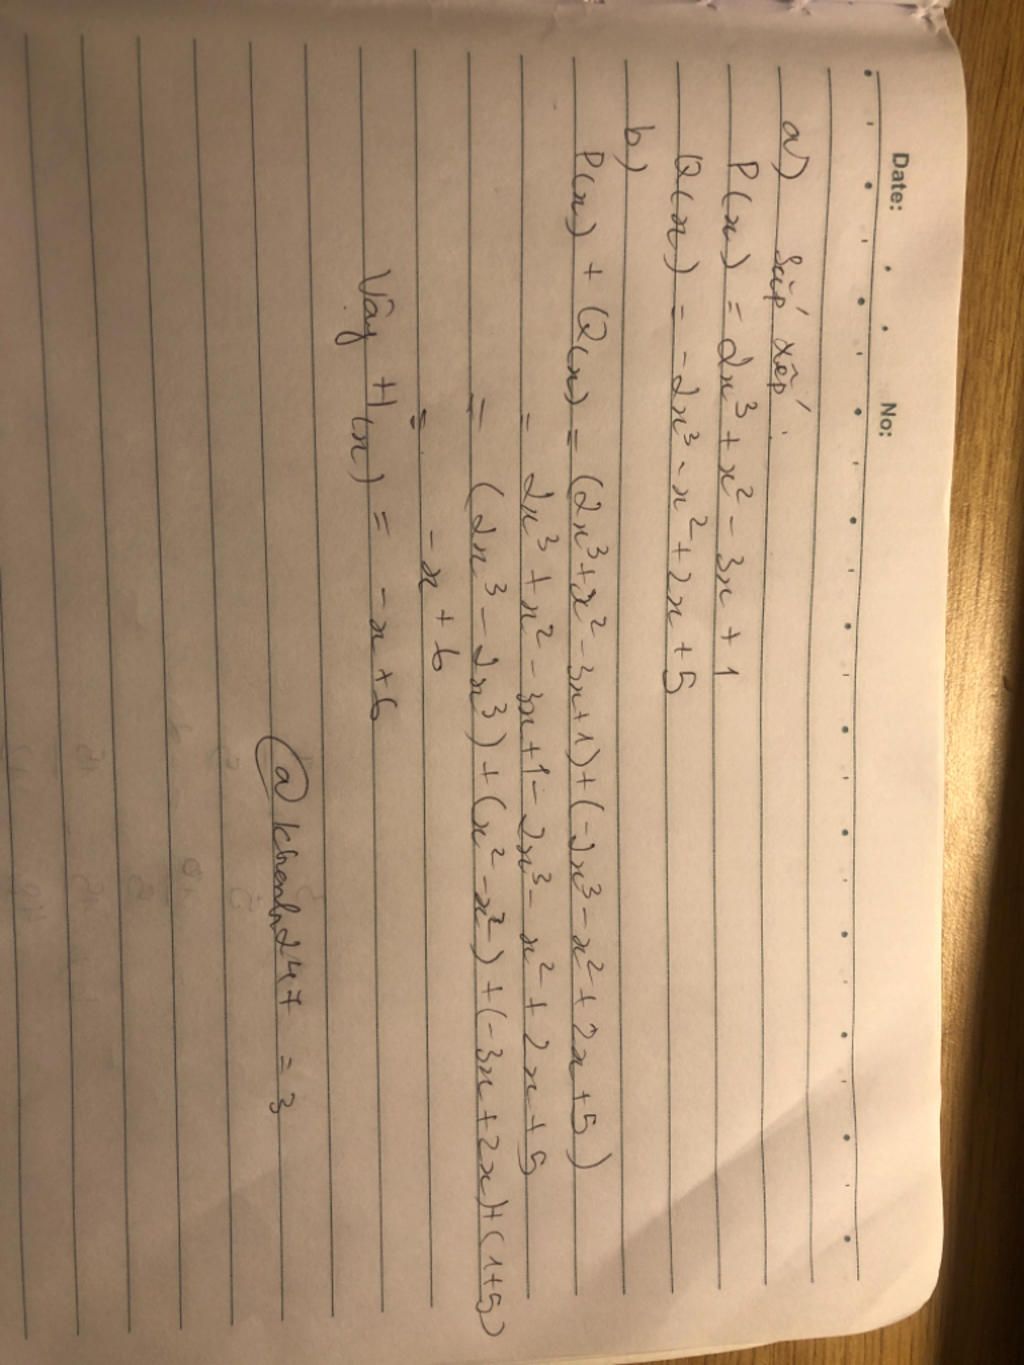 Date: No:
a) Sắp xếp.
P(x) = 2x³ + x² - 3x + 1
Q(x) = -2x³ - x² + 2x + 5
b)
P(x) + Q(x) = (2x³ + x² - 3x + 1) + (-2x³ - x² + 2x + 5)
= 2x³ + x² - 3x + 1 - 2x³ - x² + 2x + 5
= (2x³ - 2x³) + (x² - x²) + (-3x + 2x) + (1+5)
= -x + 6
Vậy H(x) = -x + 6
@khenh247 = 3